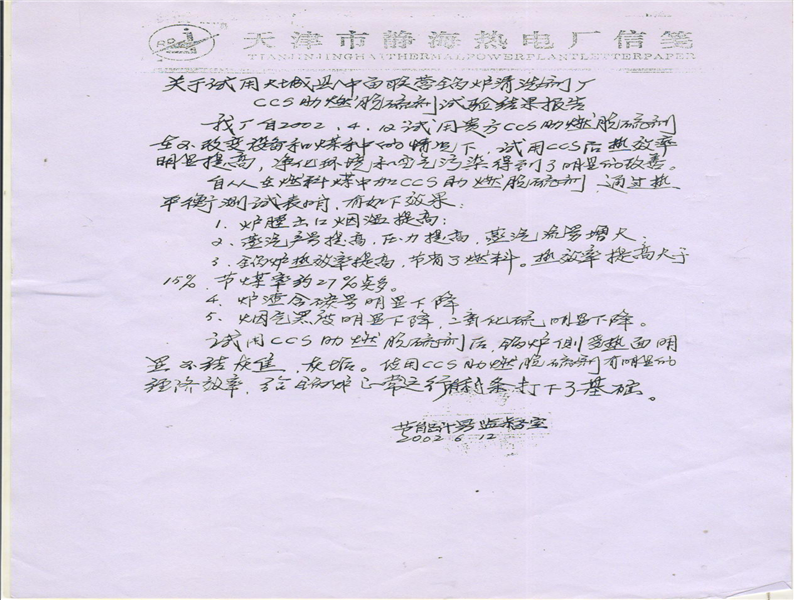 天津市静海热电厂信笺
TIANJINJINGHAITHERMALPOWERPLANTLETTERPAPER
关于试用大城县八中面收营锅炉清洗剂厂
CCS助燃脱硫剂试验结果报告
我厂自2002.4.12试用贵方CCS助燃脱硫剂
在不改变设备和煤种的情况下,试用CCS后热效率
明显提高,净化环境和空气污染得到了明显的改善。
自从在燃料煤中加CCS助燃脱硫剂,通过热
平衡测试表明,有如下效果:
1. 炉膛出口烟温提高;
2. 蒸汽产量提高,压力提高,蒸汽流量增大.
3. 锅炉热效率提高,节省了燃料。热效率提高大于
15%,节煤率约27%点多。
4. 炉渣含碳量明显下降
5. 烟气黑度明显下降,二氧化硫明显下降。
试用CCS助燃脱硫剂后,锅炉侧受热面明
显不结灰焦,灰垢。使用CCS助燃脱硫剂有明显的
经济效率,给锅炉正常运行打下了基础。
节能计量监察室
2002 6. 12